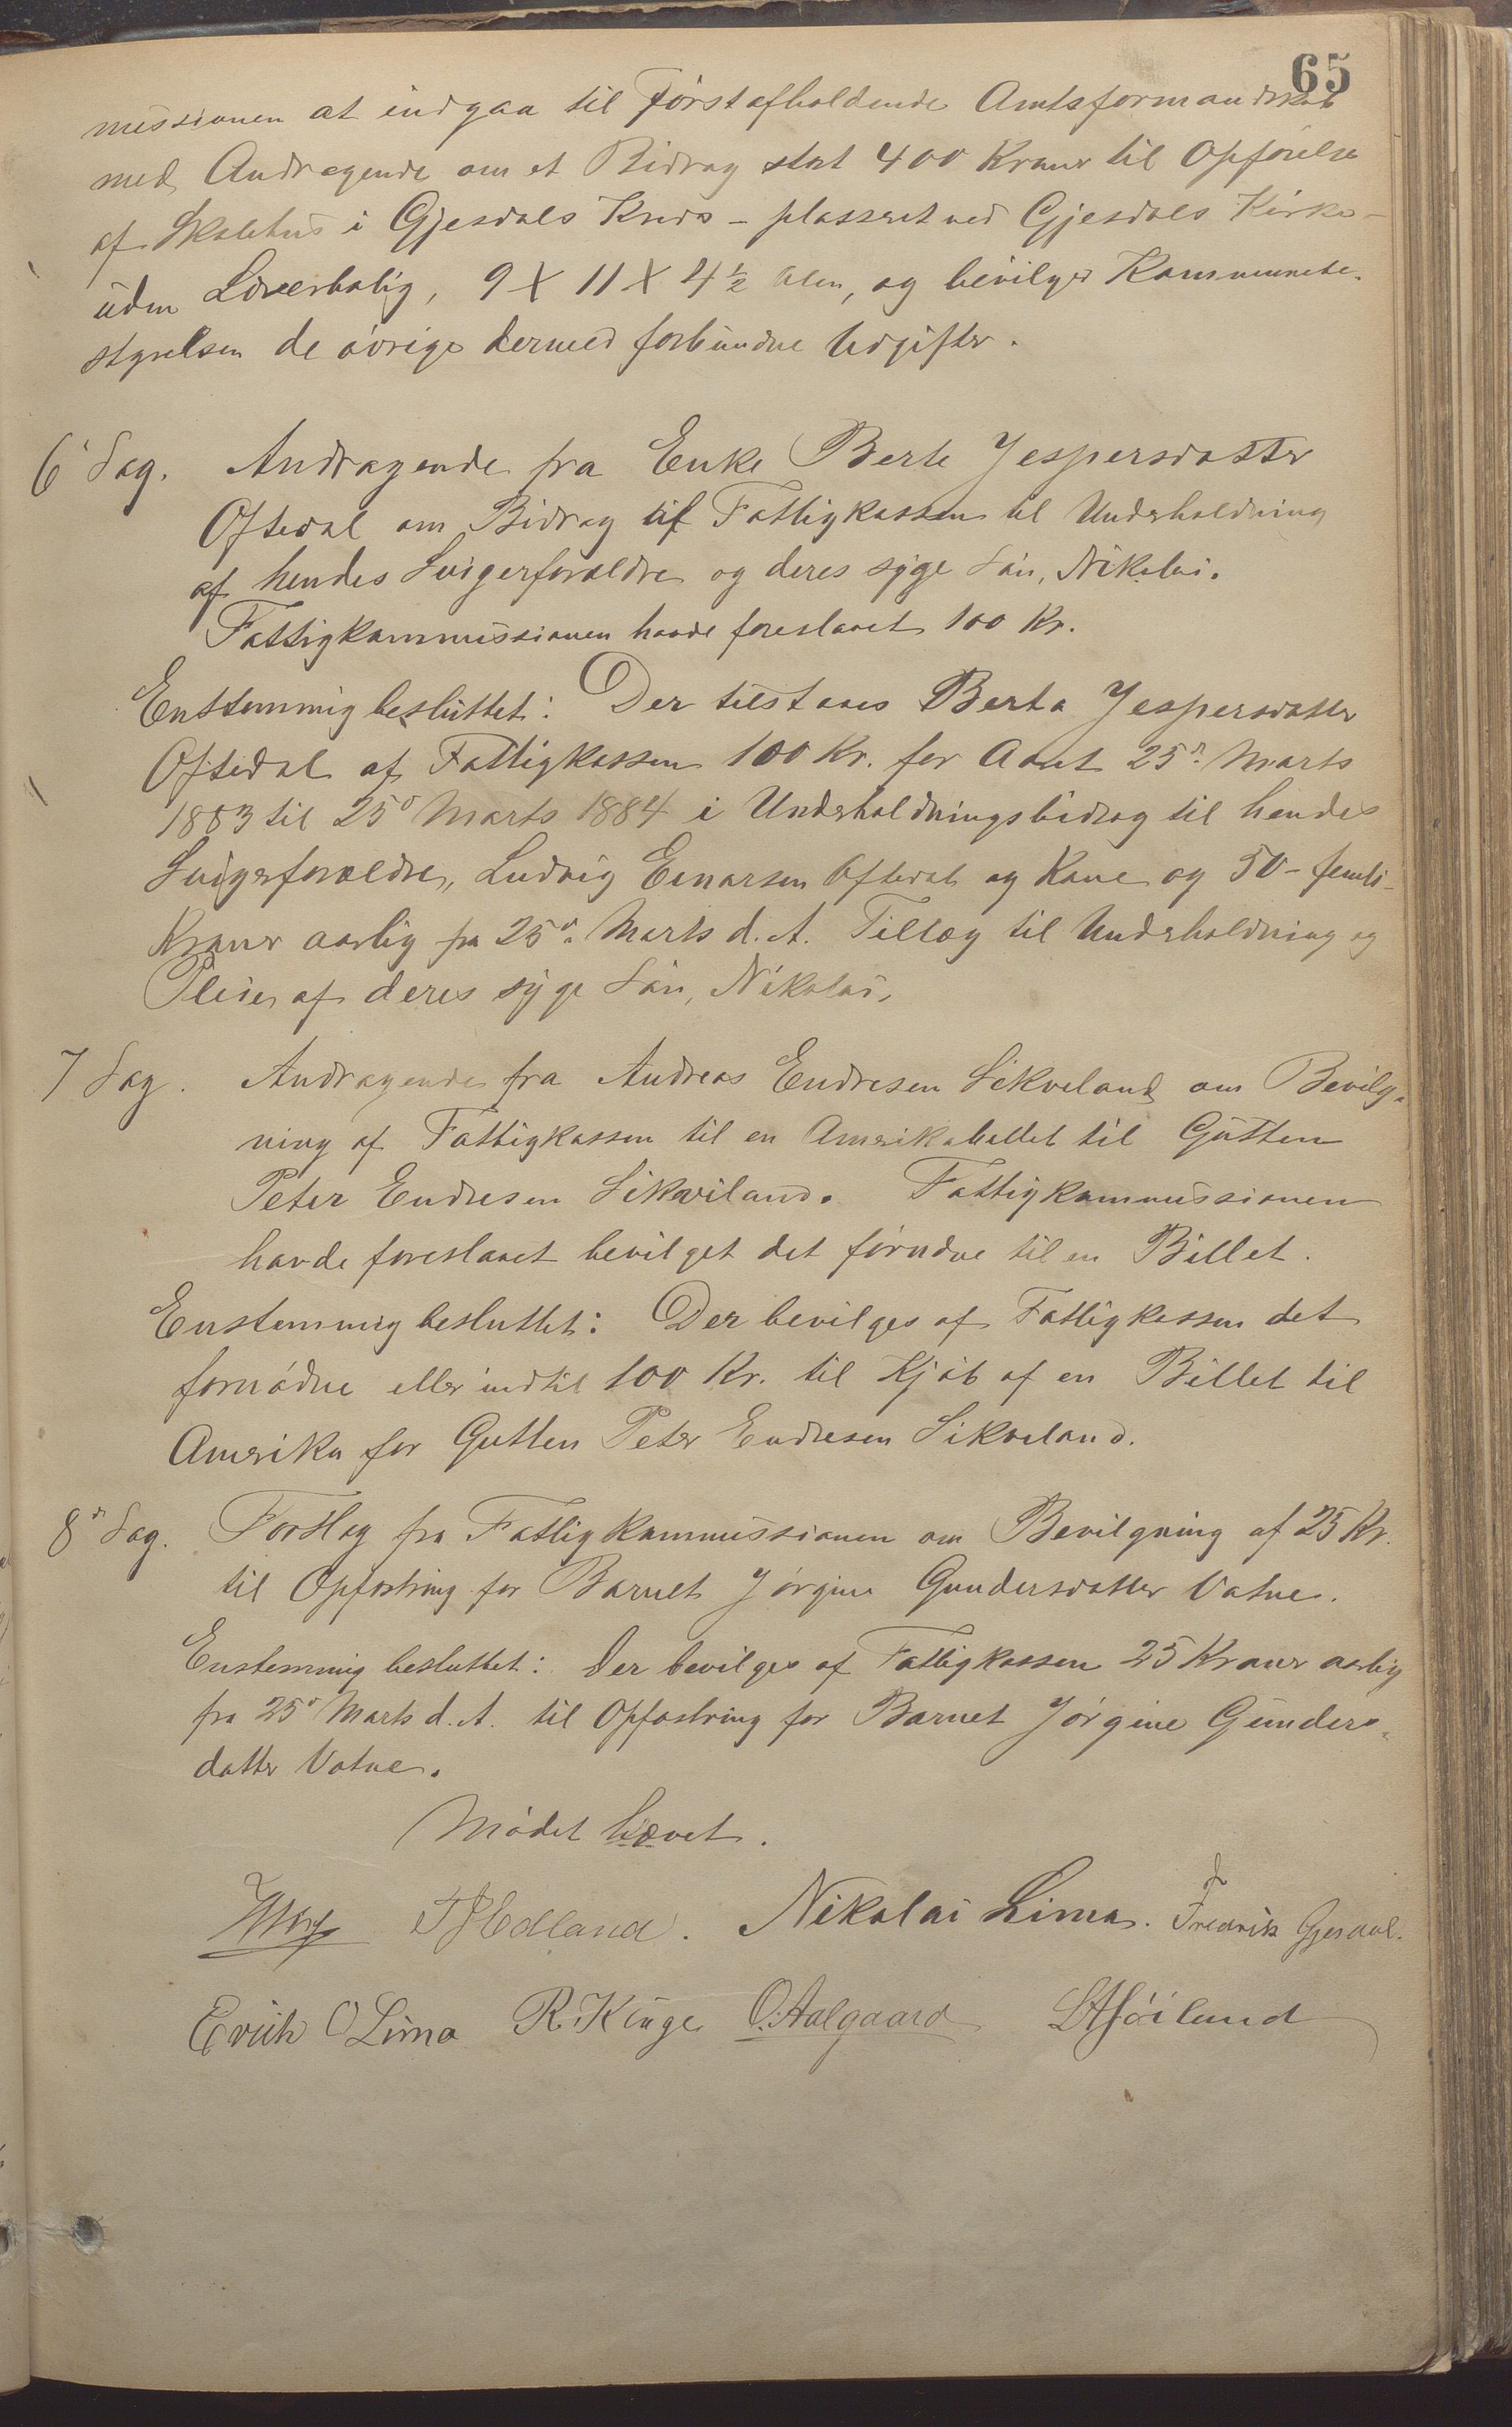 65
missionen at indgaa til förstafholdende Amtsformandskab
med Andragende om et Bidrag stort 400 Kroner til Opförelse
af Skolehus i Gjesdals Kreds – plasseret ved Gjesdals Kirke –
uden Lærerbolig, 9 X 11 X 4 1/2 Alen, og bevilger Kommune-
styrelsen de övrige dermed forbundne Udgifter.
6' Sag. Andragende fra Enke Berte Jespersdatter
Oftedal om Bidrag af Fattigkassen til Underholdning
af hendes Svigerforældre og deres syge Sön, Nikolai.
Fattigkommissionen havde foreslaaet 100 Kr.
Enstemmig besluttet: Der tilstaaes Berta Jespersdatter
Oftedal af Fattigkassen 100 Kr. for Aaret 25de Marts
1883 til 25de Marts 1884 i Underholdningsbidrag til hendes
Svigerforældre, Ludvig Einarsen Oftedal og Kone og 50 – femti –
Kroner aarlig fra 25de Marts d. A. Tillæg til Underholdning og
Pleie af deres syge Sön, Nikolai.
7 Sag. Andragende fra Andreas Endresen Sikveland om Bevilg-
ning af Fattigkassen til en Amerikabillet til Gutten
Peter Endresen Sikveland. Fattigkommissionen
havde foreslaaet bevilget det fornödne til en Billet.
Enstemmig besluttet: Der bevilges af Fattigkassen det
fornödne eller indtil 100 Kr. til Kjöb af en Billet til
Amerika for Gutten Peter Endresen Sikveland.
8de Sag. Forslag fra Fattigkommissionen om Bevilgning af 25 Kr.
til Opfostring for Barnet Jörgine Gundersdatter Vatne.
Enstemmig besluttet: Der bevilges af Fattigkassen 25 Kroner aarlig
fra 25de Marts d. A. til Opfostring for Barnet Jörgine Gunders-
datter Vatne.
Mödet hævet.
Hedland. Nikolai Lima. Fredrik Gjesdal.
Erich O Lima R. Kluge O. Aalgaard Höiland